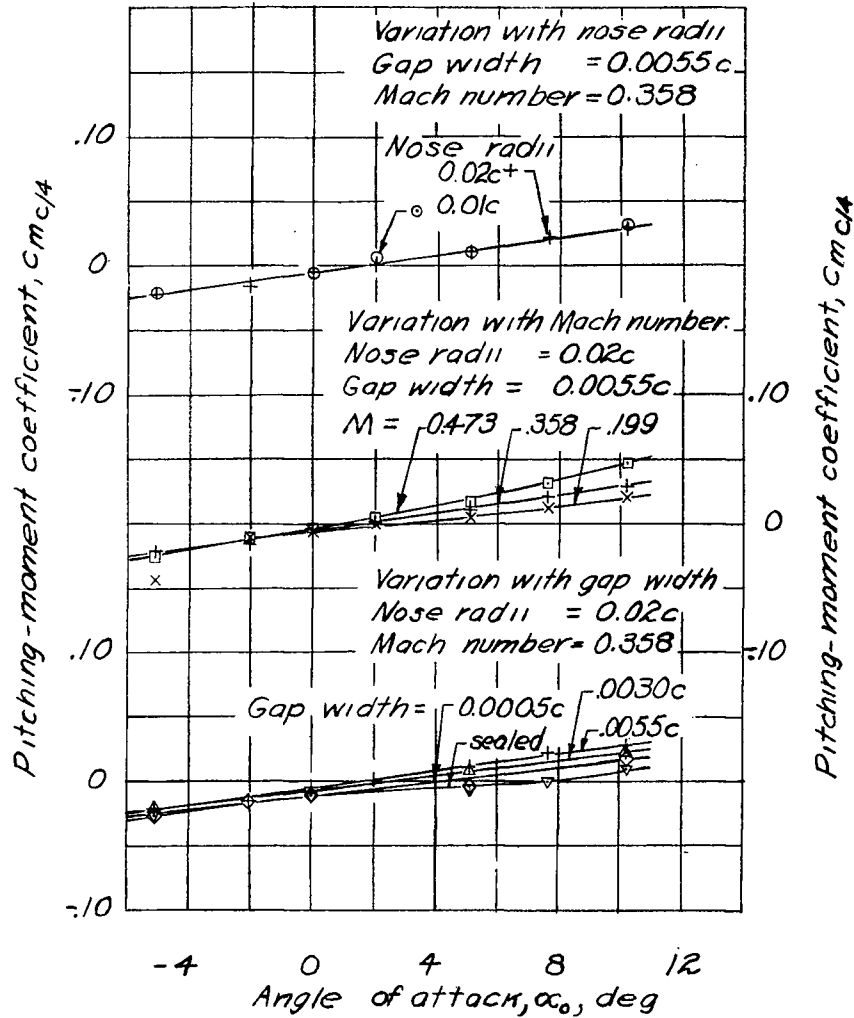 Variation with nose radii
Gap width = 0.0055c
Mach number = 0.358
Nose radii
0.02c +
⊙ 0.01c
.10
0
-.10
Variation with Mach number.
Nose radii = 0.02c
Gap width = 0.0055c
M = 0.473 .358 .199
.10
0
-.10
Variation with gap width
Nose radii = 0.02c
Mach number = 0.358
Gap width = 0.0005c .0030c
sealed .0055c
.10
0
-.10
Pitching-moment coefficient, cmc/4
Pitching-moment coefficient, cmc/4
-4 0 4 8 12
Angle of attack, α₀, deg